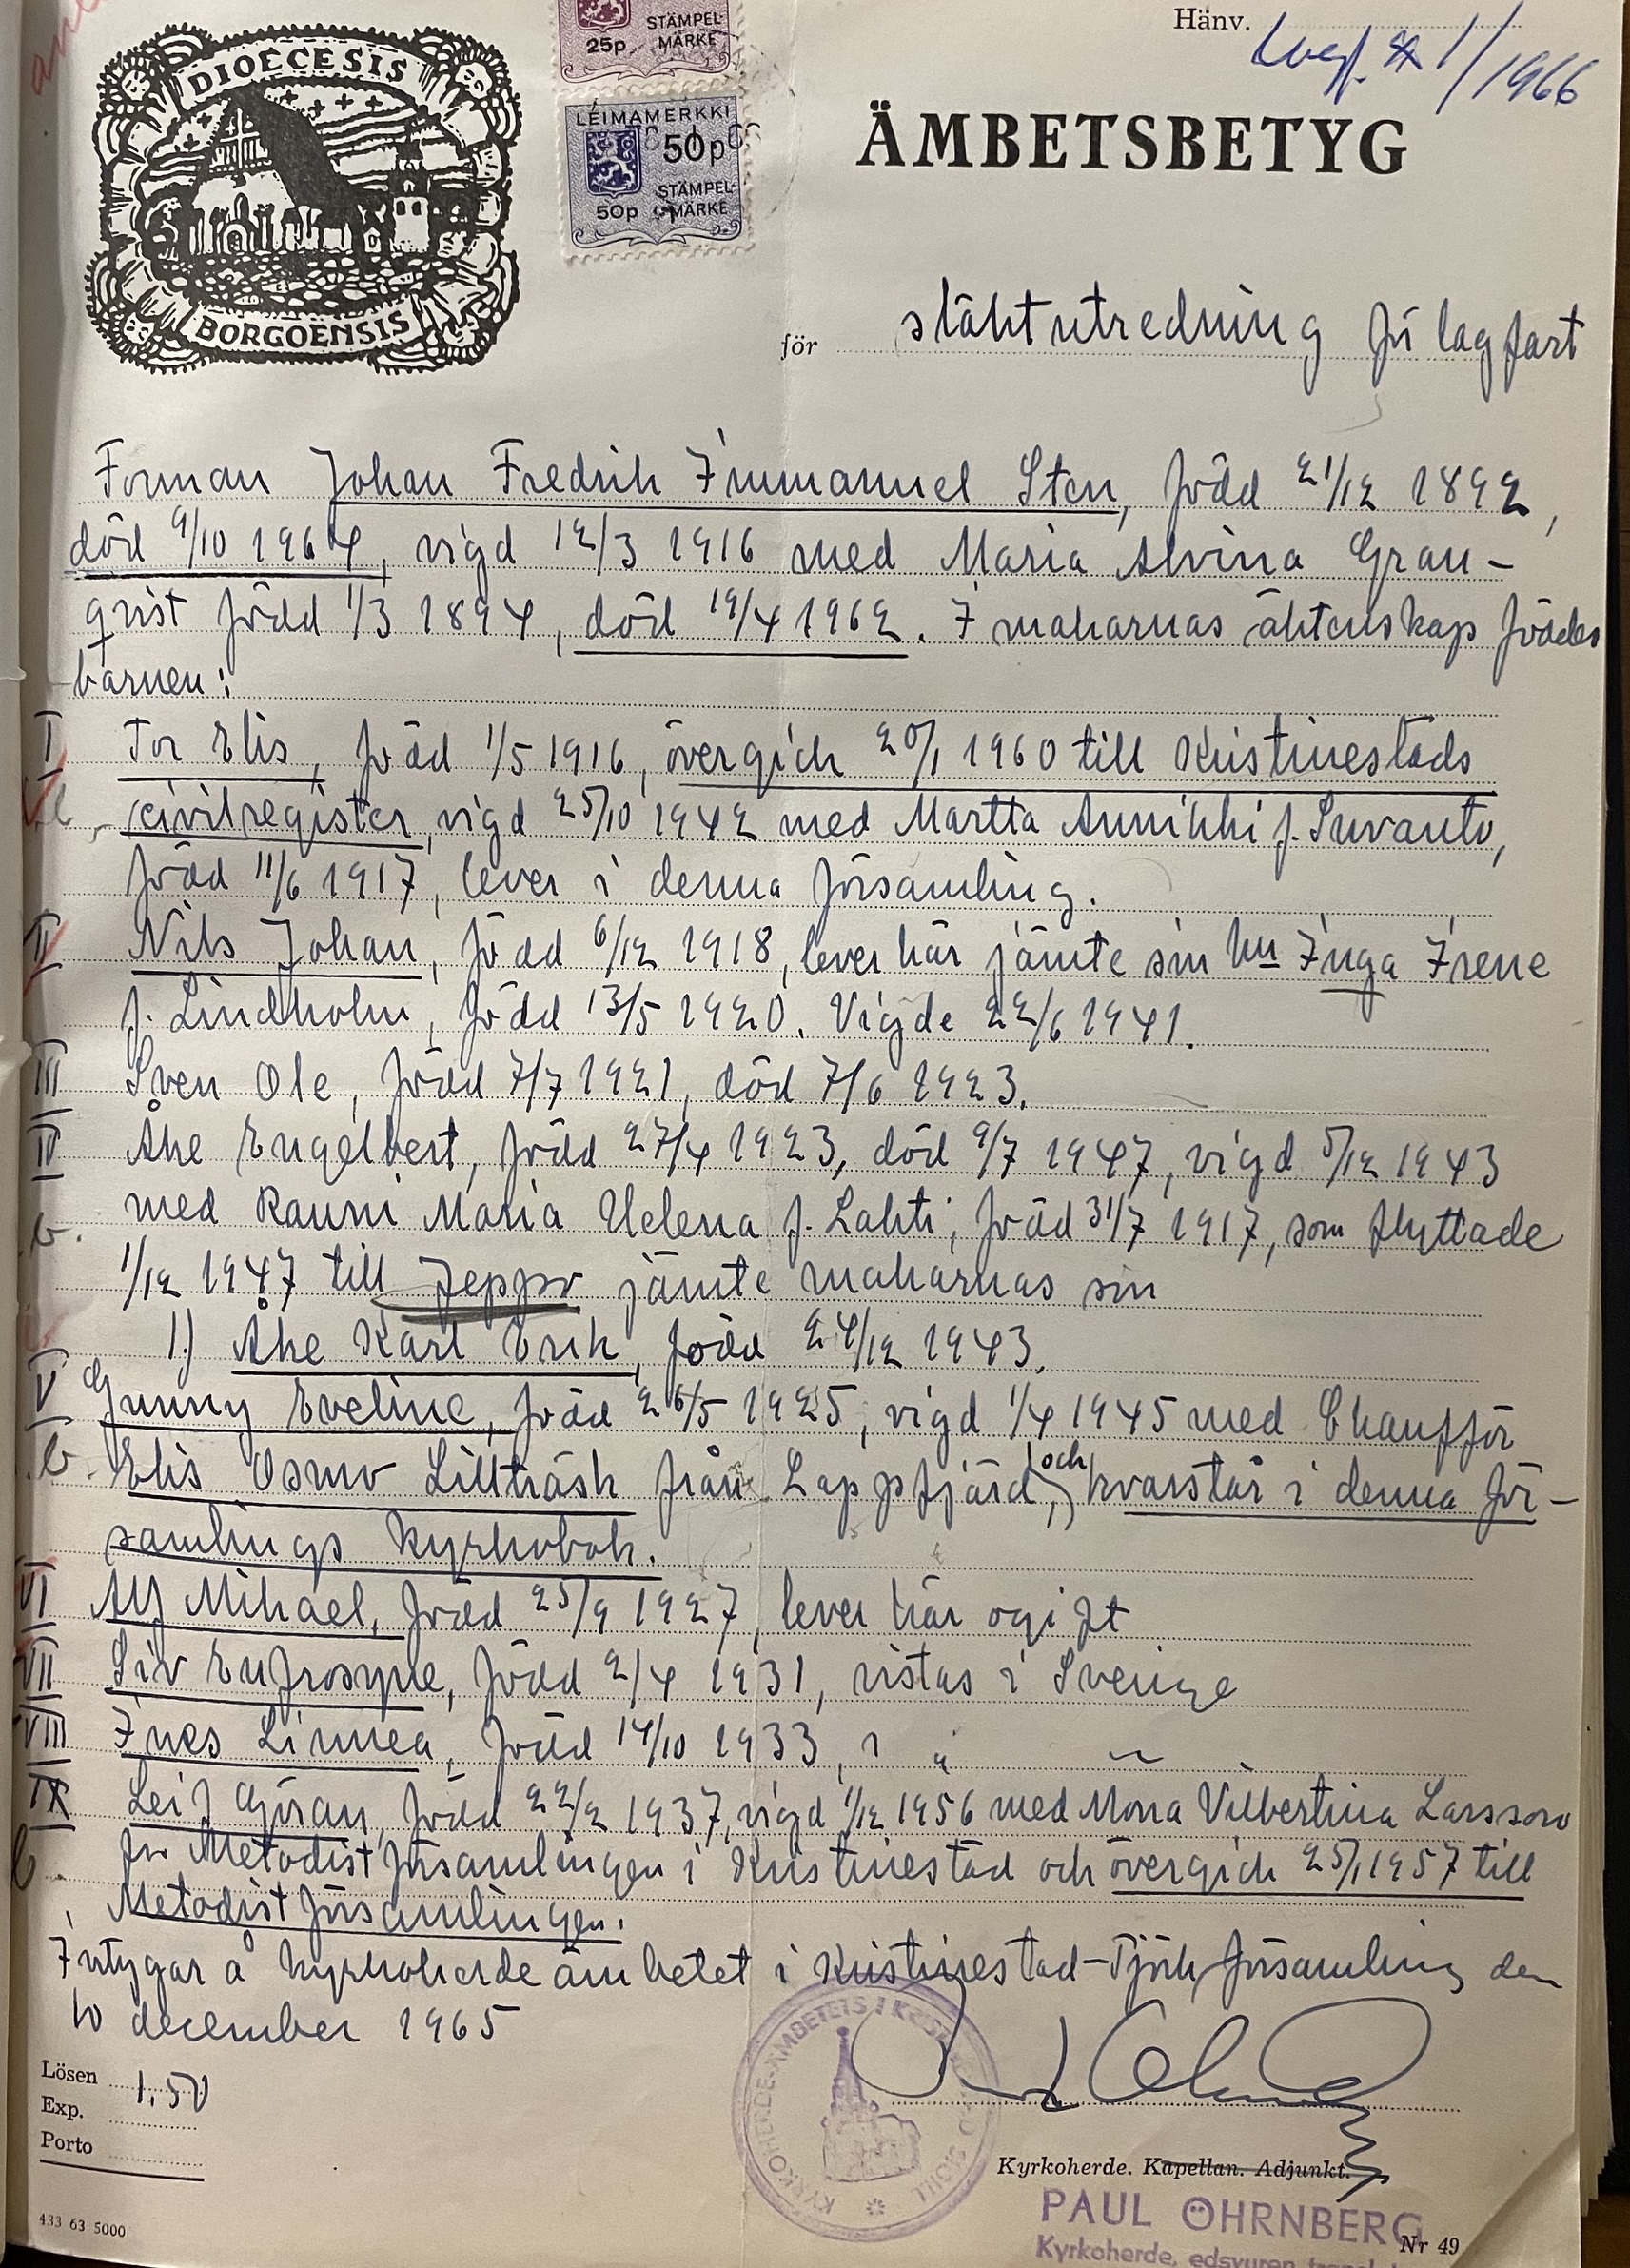 Hänv.
1/1966
DIOECESIS
BORGOENSIS
25p STÄMPEL-
MÄRKE
LEIMAMERKKI
50p
STÄMPEL-
50p MÄRKE
ÄMBETSBETYG
för släktutredning för lagfart
Forman Johan Fredrik Immanuel Sten, född 21/12 1892,
död 9/10 1964, vigd 12/3 1916 med Maria Alvina Gran-
qvist född 1/3 1894, död 19/4 1962. I makarnas äktenskap föddes
barnen:
I Tor Elis, född 1/5 1916, övergick 20/1 1960 till Kristinestads
civilregister, vigd 25/10 1942 med Martta Annikki f. Suvanto,
född 11/6 1917, lever i denna församling.
II Nils Johan, född 6/12 1918, lever här jämte sin hu Inga Irene
f. Lindholm, född 13/5 1920. Vigde 22/6 1941.
III Sven Ole, född 7/7 1921, död 7/6 1923.
IV Åke Engelbert, född 27/4 1923, död 9/7 1947, vigd 5/12 1943
b. med Rauni Maria Helena f. Lahti, född 31/7 1917, som flyttade
1/12 1947 till Jeppo jämte makarnas son
1) Åke Karl Erik, född 24/12 1943.
V Gunny Eveline, född 26/5 1925, vigd 1/4 1945 med Chaufför
b. Elis Osmo Lillträsk från Lappfjärd, och kvarstår i denna för-
samlings kyrkobok.
VI Alf Mikael, född 25/9 1927, lever här ogift
VII Siv Eufrosyne, född 2/4 1931, vistas i Sverige
VIII Ines Linnea, född 14/10 1933, i "
IX Leif Göran, född 22/2 1937, vigd 1/12 1956 med Mona Vilbertina Larsson
b från Metodistförsamlingen i Kristinestad och övergick 25/1 1957 till
Metodistförsamlingen.
Intygar å kyrkoherdeämbetet i Kristinestad-Tjöck församling den
10 december 1965
Lösen 1,50
Exp.
Porto
KYRKOHERDE-ÄMBETETS I
Kyrkoherde. Kapellan. Adjunkt.
PAUL ÖHRNBERG
Kyrkoherde, edsvuren
433 63 5000
Nr 49